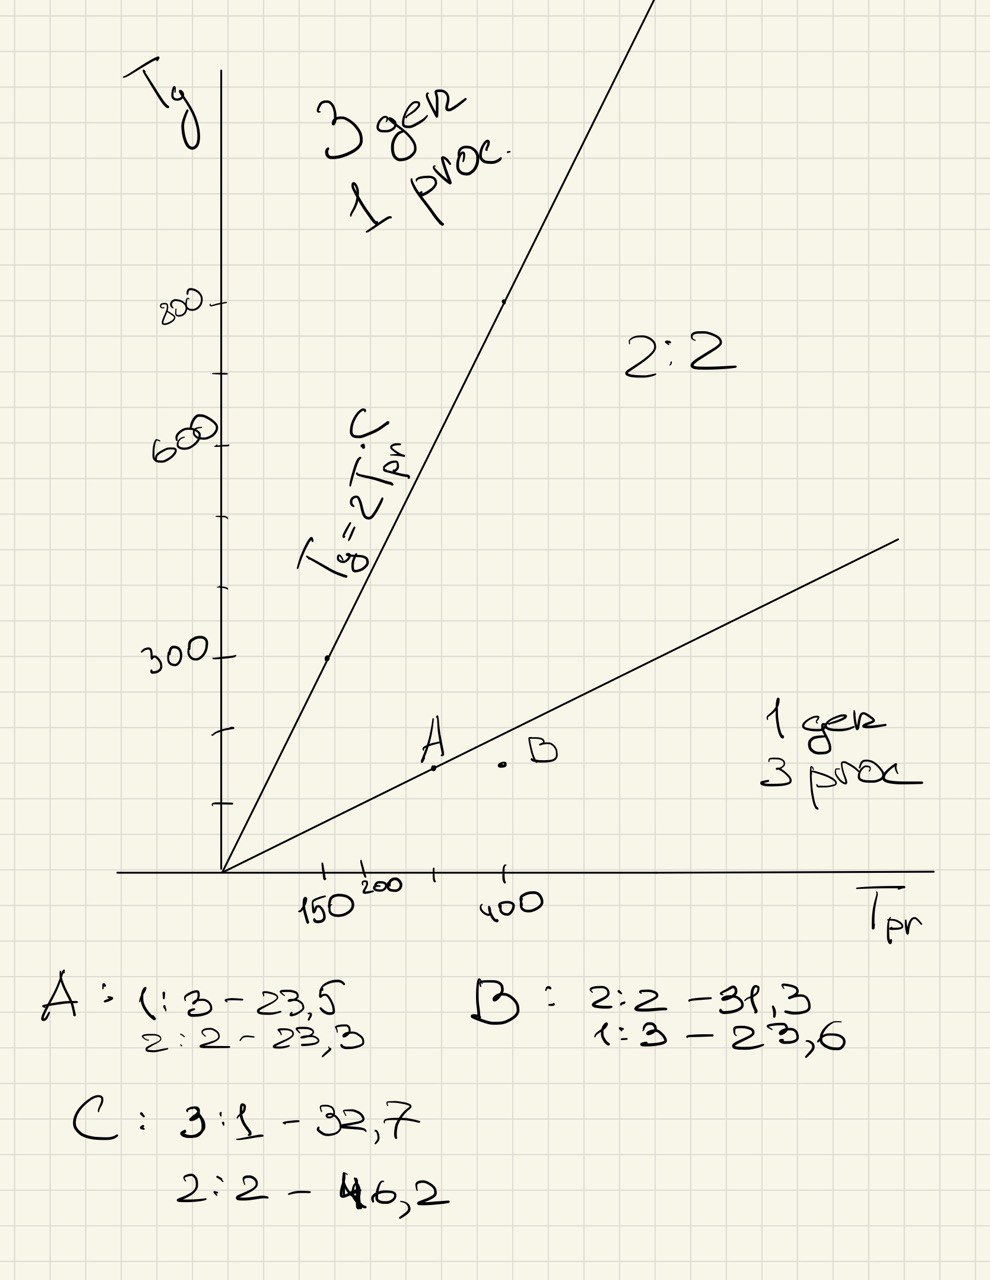 Tg
3 gen
1 proc.
800
2:2
600
C
Tg = 2Tpr
300
1 gen
3 proc
A
B
150
200
400
Tpr
A: 1:3 - 23,5
2:2 - 23,3
B: 2:2 - 31,3
1:3 - 23,6
C: 3:1 - 32,7
2:2 - 46,2